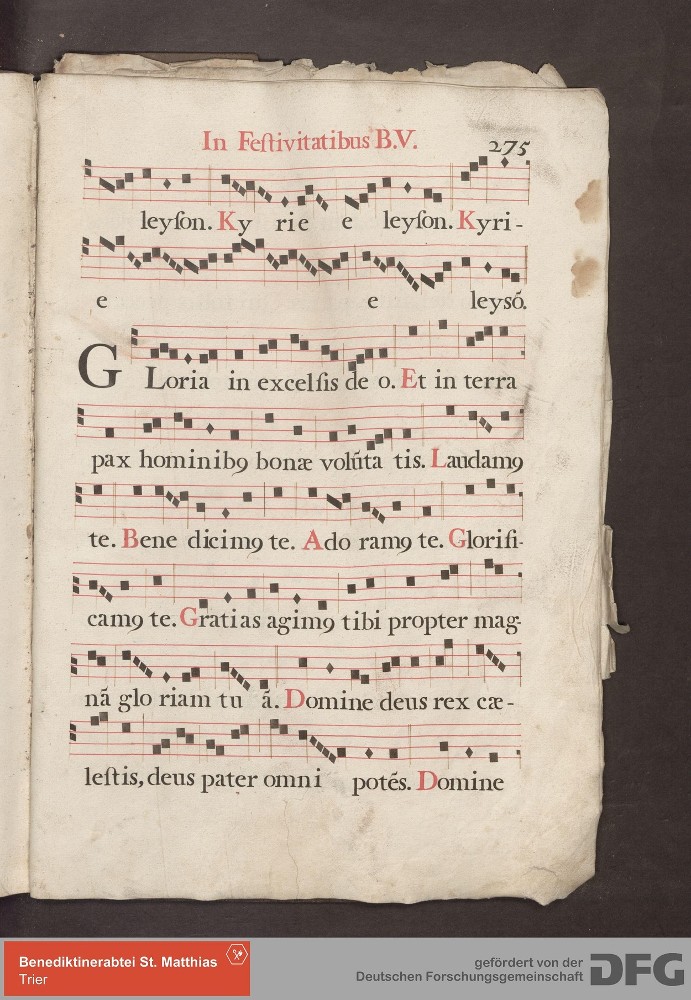 In Feſtivitatibus B.V.
275
leyſon. Ky rie e leyſon. Kyri-
e e leysõ.
GLoria in excelſis de o. Et in terra
pax hominibꝯ bonæ volũta tis. Laudamꝯ
te. Bene dicimꝯ te. Ado ramꝯ te. Glorifi-
camꝯ te. Gratias agimꝯ tibi propter mag-
nã glo riam tu ã. Domine deus rex cæ-
leſtis, deus pater omni potẽs. Domine
Benediktinerabtei St. Matthias
Trier
gefördert von der
Deutschen Forschungsgemeinschaft
DFG